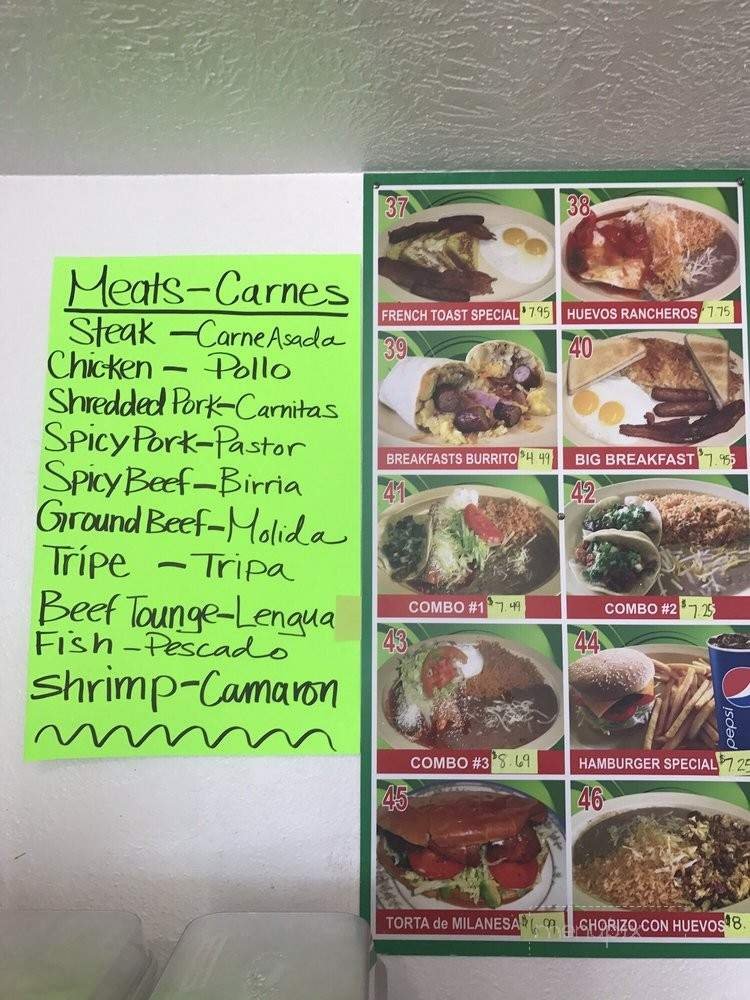 Meats-Carnes
Steak - Carne Asada
Chicken - Pollo
Shredded Pork-Carnitas
Spicy Pork-Pastor
Spicy Beef-Birria
Ground Beef-Molida
Tripe - Tripa
Beef Tounge-Lengua
Fish - Pescado
Shrimp-Camaron
37
FRENCH TOAST SPECIAL $7.95
38
HUEVOS RANCHEROS 7.75
39
BREAKFASTS BURRITO $4.49
40
BIG BREAKFAST $7.95
41
COMBO #1 $7.49
42
COMBO #2 $7.25
43
COMBO #3 $8.69
44
pepsi
HAMBURGER SPECIAL $7.25
45
TORTA de MILANESA $6.99
46
CHORIZO CON HUEVOS $8.